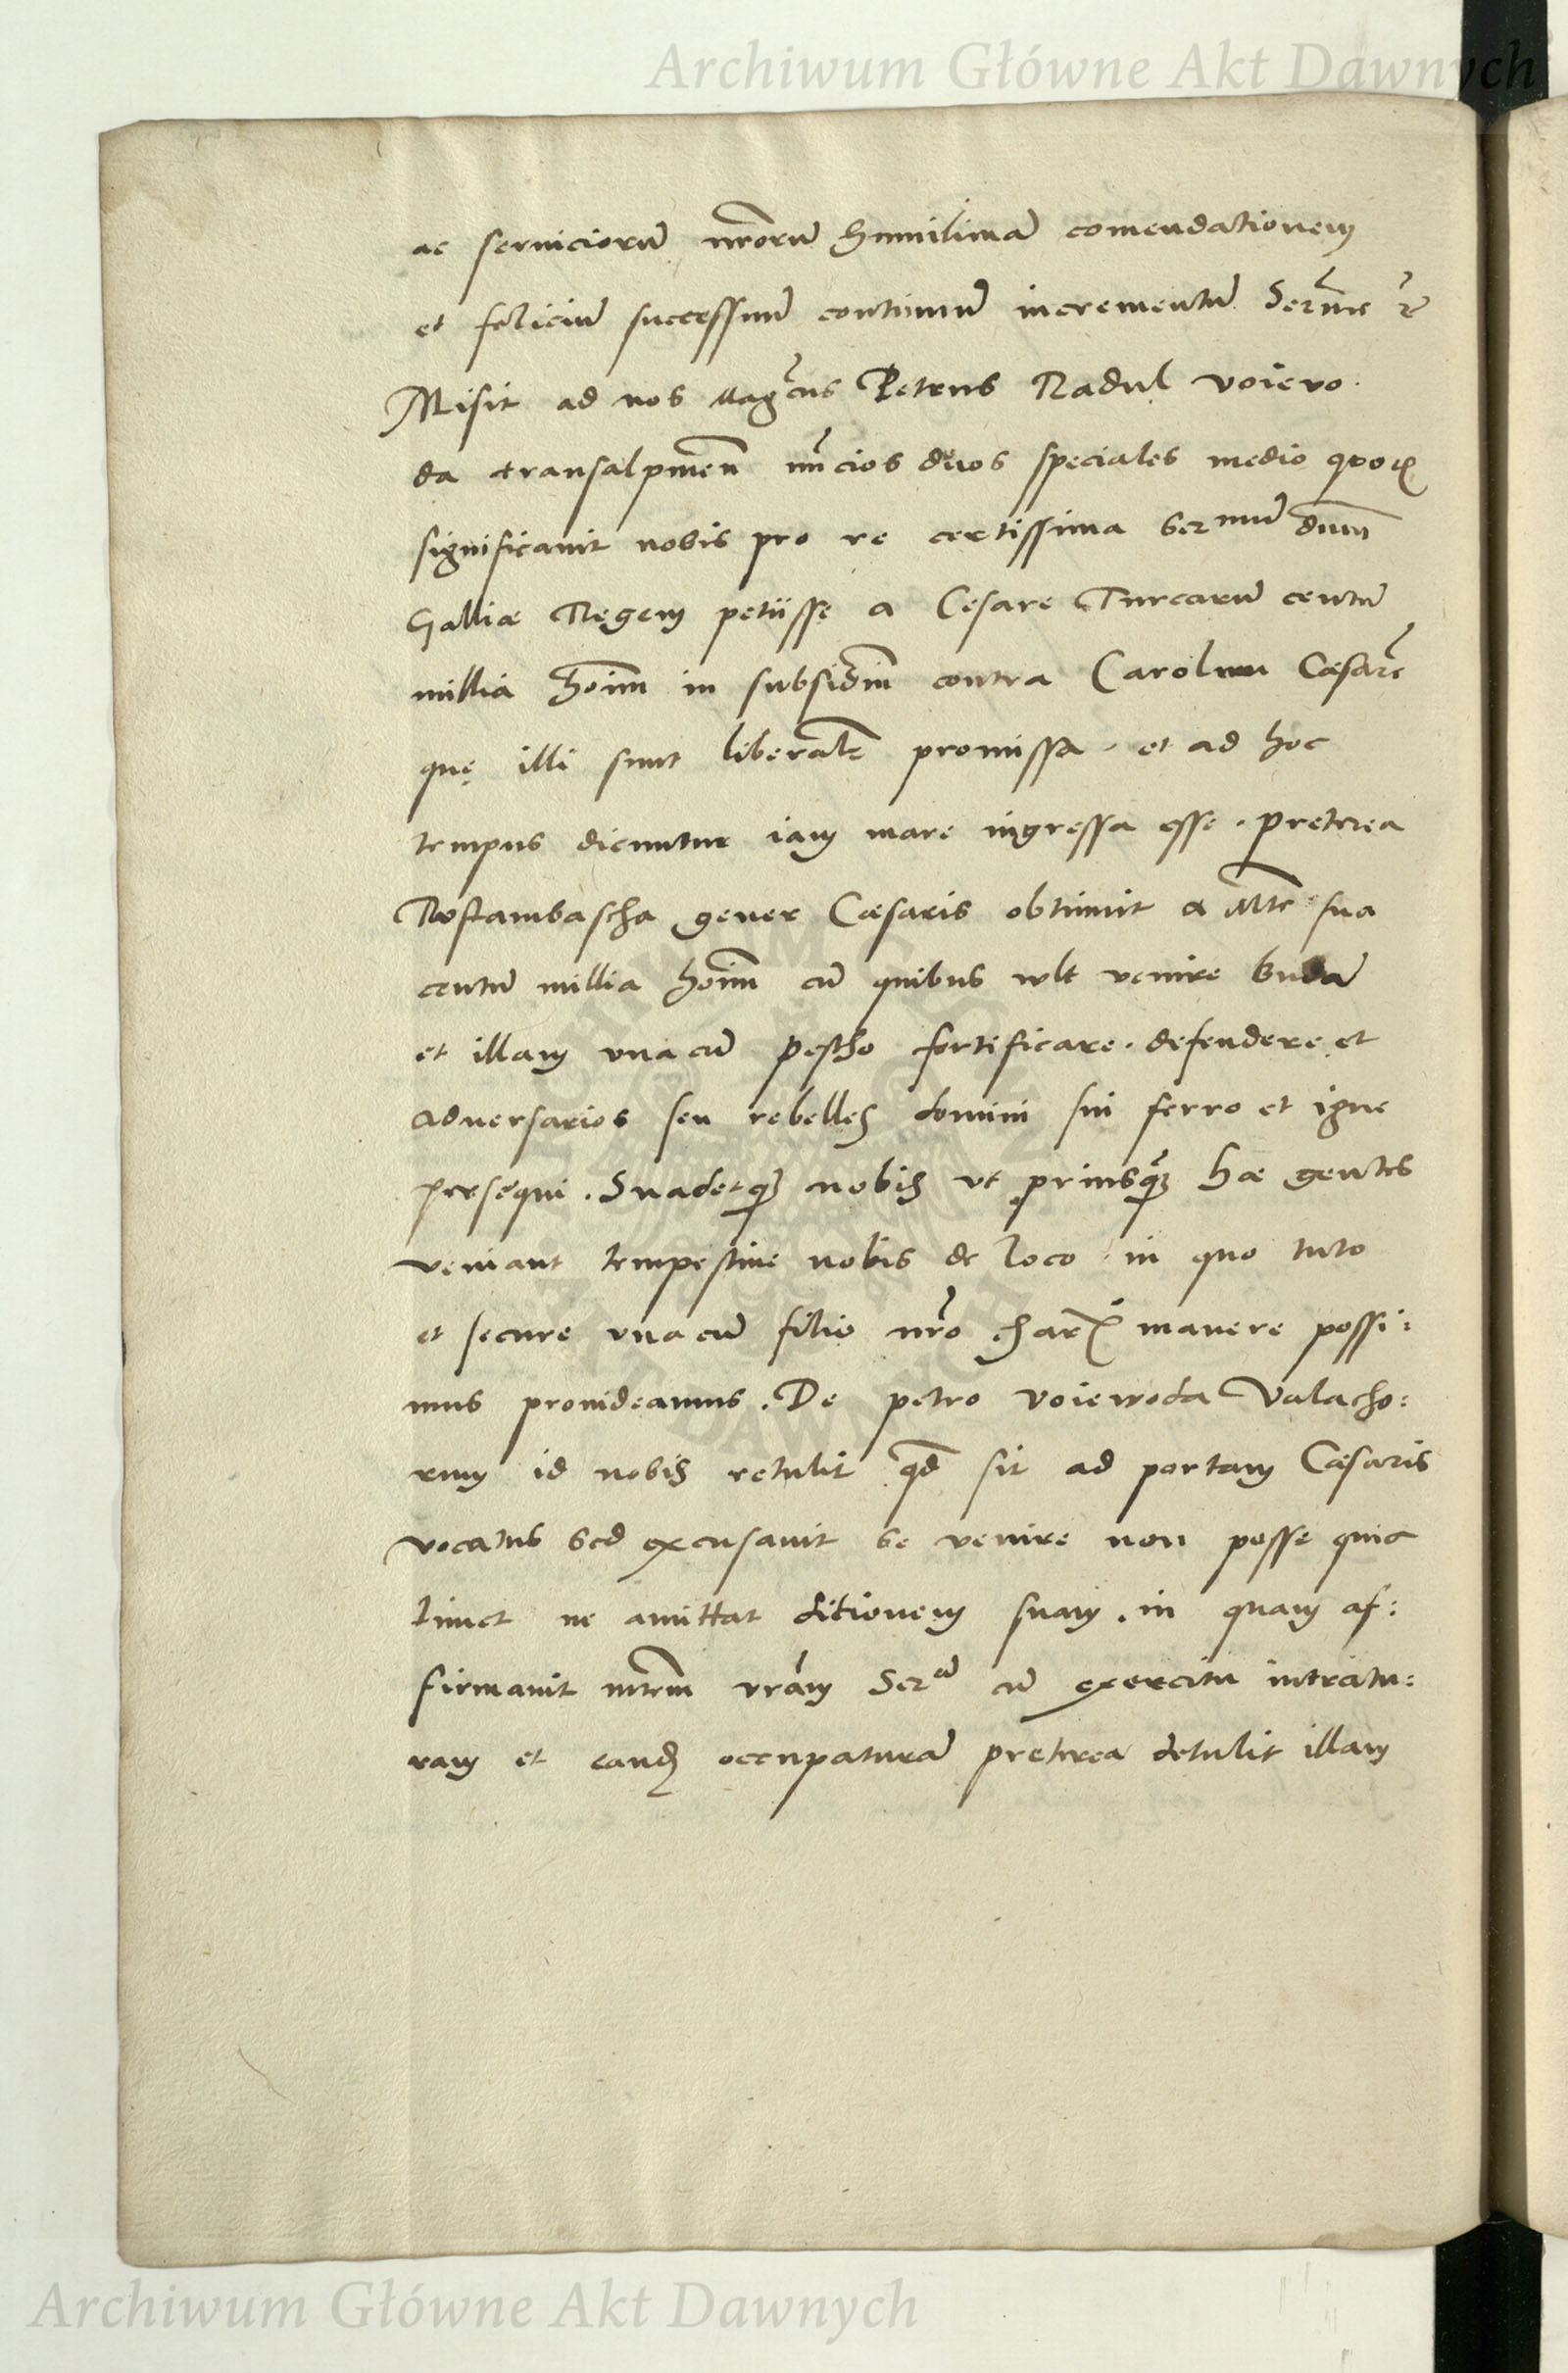 Archiwum Główne Akt Dawnych
ac seruiciorũ nr̃orũ humilimã comendationem
et feliciũ successuũ continuũ incrementũ Serm̃e r̃
Misit ad nos Mag̃cus Petrus Radul voievo
da transalpineñ nũcios duos speciales medio quoꝝ
significauit nobis pro re certissima Sermũ dnm̃
Galliæ Regem petiisse a Cesare Turcarũ centũ
millia hoim̃ in subsidiũ contra Carolum Cæsarẽ
quę illi sunt liberalr̃ promissa . et ad hoc
tempus dicuntur iam mare ingressa esse . preterea
Rostambascha gener Cæsaris obtinuit a Mt̃e sua
centũ millia hoim̃ cũ quibus vult venire budã
et illam vna cũ pestho fortificare . defendere et
aduersarios seu rebelles domini sui ferro et igne
persequi . Suadetqꝫ nobis vt priusqꝫ̃ hæ gentes
veniant tempestiue nobis de loco in quo tuto
et secure vna cũ filio nrõ charᵒ manere possi:
mus prouideamus . De petro voiewoda Valacho:
rum id nobis retulit qd̃ sit ad portam Cæsaris
vocatus sed excusauit se venire non posse quia
timet ne amittat ditionem suam . in quam af:
firmauit mtem̃ vrãm Serᵃ̃ cũ exercitu intratu:
ram et eandẽ occupaturã preterea detulit illam
Archiwum Główne Akt Dawnych